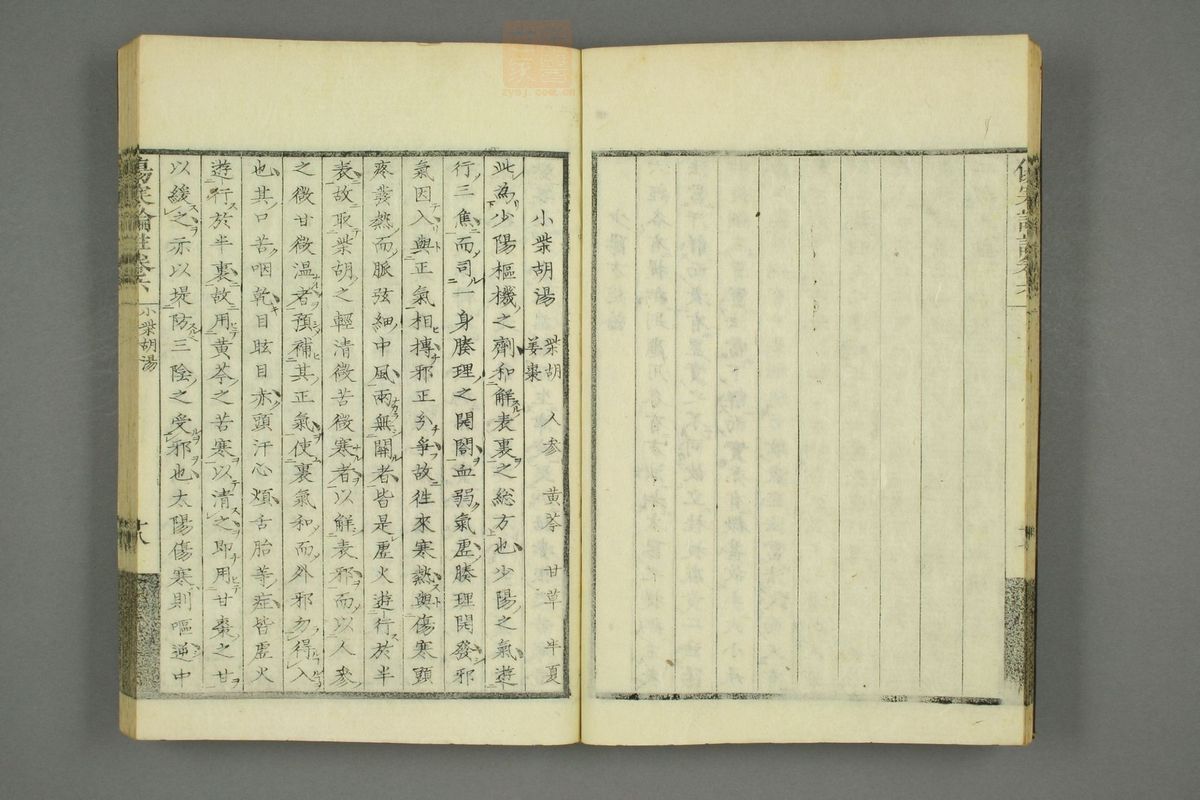 小柴胡湯 柴胡 人参 黄芩 甘草 半夏
姜棗
此為少陽樞機之劑和解表裏之総方也少陽之氣遊
行三焦而司一身腠理之開闔血弱氣虚腠理開發邪
氣因入與正氣相搏邪正分爭故徃來寒熱與傷寒頭
疼發熱而脈弦細中風兩無關者皆是虚火遊行於半
表故取柴胡之輕清微苦微寒者以解表邪而以人參
之微甘微温者預補其正氣使裏氣和而外邪勿得入
也其口苦咽乾目眩目赤頭汗心煩舌胎等症皆虚火
遊行於半裏故用黄芩之苦寒以清之即用甘棗之甘
以緩之亦以堤防三陰之受邪也太陽傷寒則嘔逆中
傷寒論註卷六 小柴胡湯 十八
zysj.com.cn